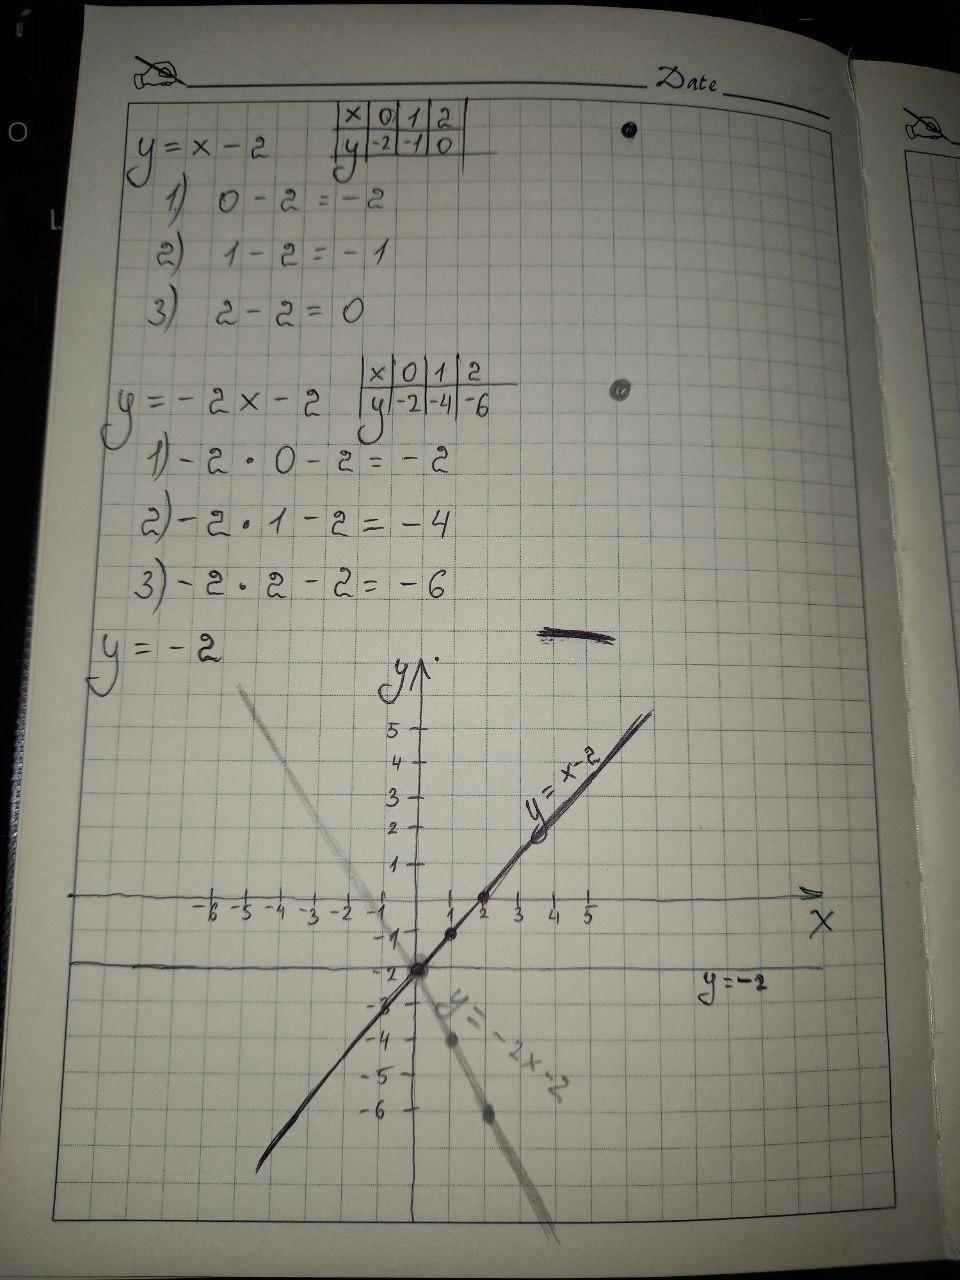 Date
x 0 1 2
y = x - 2 y -2 -1 0
1) 0 - 2 = -2
2) 1 - 2 = - 1
3) 2 - 2 = 0
x 0 1 2
y = - 2 x - 2 y -2 -4 -6
1) - 2 · 0 - 2 = - 2
2) - 2 · 1 - 2 = - 4
3) - 2 · 2 - 2 = - 6
y = - 2
y
5
4
3
2
1
y = x-2
-6 -5 -4 -3 -2 -1 1 2 3 4 5
x
-1
-2
y = -2
-3
-4
-5
-6
y = -2x-2